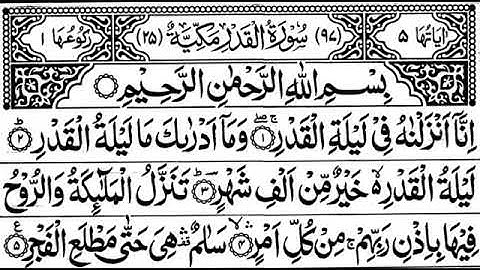 اٰيَاتُهَا ٥ (٩٧) سُوْرَةُ الْقَدْرِ مَكِّيَّةٌ (٢٥) رُكُوْعُهَا ١
بِسْمِ اللّٰهِ الرَّحْمٰنِ الرَّحِيْمِ
اِنَّاۤ اَنْزَلْنٰهُ فِیْ لَيْلَةِ الْقَدْرِ ۚۖ ﴿١﴾ وَمَاۤ اَدْرٰىكَ مَا لَيْلَةُ الْقَدْرِ ؕ ﴿٢﴾
لَيْلَةُ الْقَدْرِ ۙ خَيْرٌ مِّنْ اَلْفِ شَهْرٍ ؕ ﴿٣﴾ تَنَزَّلُ الْمَلٰٓئِكَةُ وَالرُّوْحُ
فِيْهَا بِاِذْنِ رَبِّهِمْ ۚ مِنْ كُلِّ اَمْرٍ ۙ ﴿٤﴾ سَلٰمٌ ۛ هِیَ حَتّٰی مَطْلَعِ الْفَجْرِ ﴿٥﴾ ع